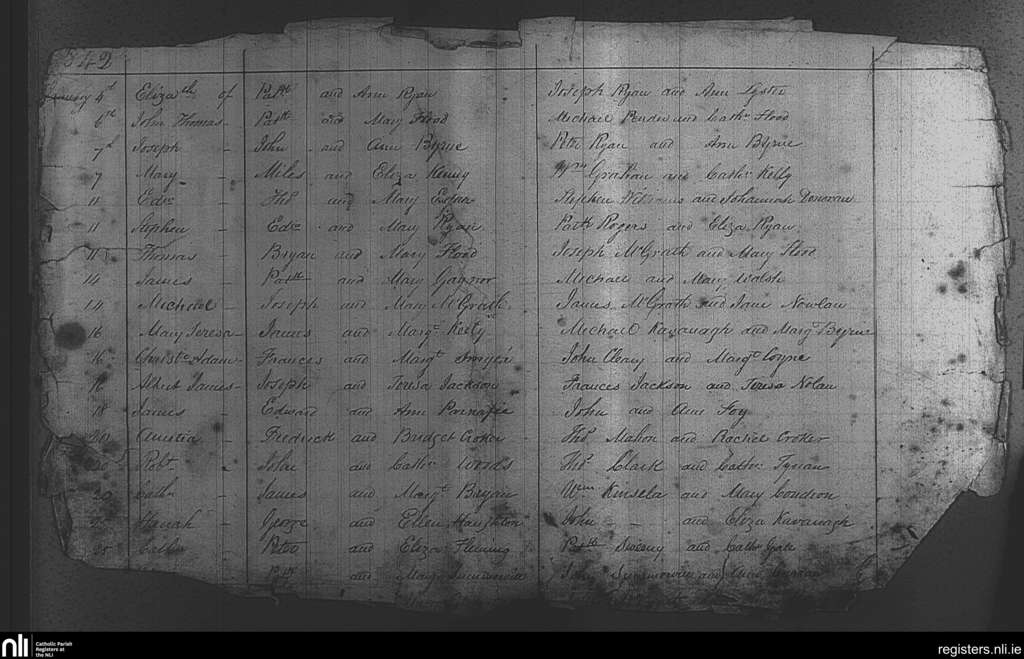 342
4th Elizath of Patk and Ann Ryan Joseph Ryan and Ann Lyster
6th John Thomas - Patk and Mary Flood Michael and Cathn Flood
7th Joseph - John and Ann Byrne Peter Ryan and Ann Byrne
7 Mary - Miles and Eliza Kenny Wm Grattan and Cathn Kelly
11 Edwd - Thos and Mary Stephen and Johannah Donovan
11 Stephen - Edwd and Mary Ryan Patk Rogers and Eliza Ryan
11 Thomas - Bryan and Mary Flood Joseph McGrath and Mary Flood
14 James - Patk and Mary Gaynor Michael and Mary Walsh
14 Michael - Joseph and Mary McGrath James McGrath and Jane Nowlan
16 Mary Teresa - James and Margt Kelly Michael Kavanagh and Margt Byrne
16 Adam - Frances and Margt John Cleary and Margt Coyne
Albert James - Joseph and Teresa Jackson Frances Jackson and Teresa Nolan
18 James - Edward and Ann John and Ann Foy
20 Amelia - Fredrick and Bridget Croker Thos Mahon and Rachel Croker
20 Robt - John and Cathn Woods Thos Clark and Cathn Tynan
20 Cathn - James and Margt Bryan Wm Kinsela and Mary Condron
Hanah - George and Ellen Haughton John - and Eliza Kavanagh
25 - Peter and Eliza Fleming Patk Sweeny and Cathn
Patk and Mary John and
nli
Catholic Parish
Registers at
the NLI
registers.nli.ie